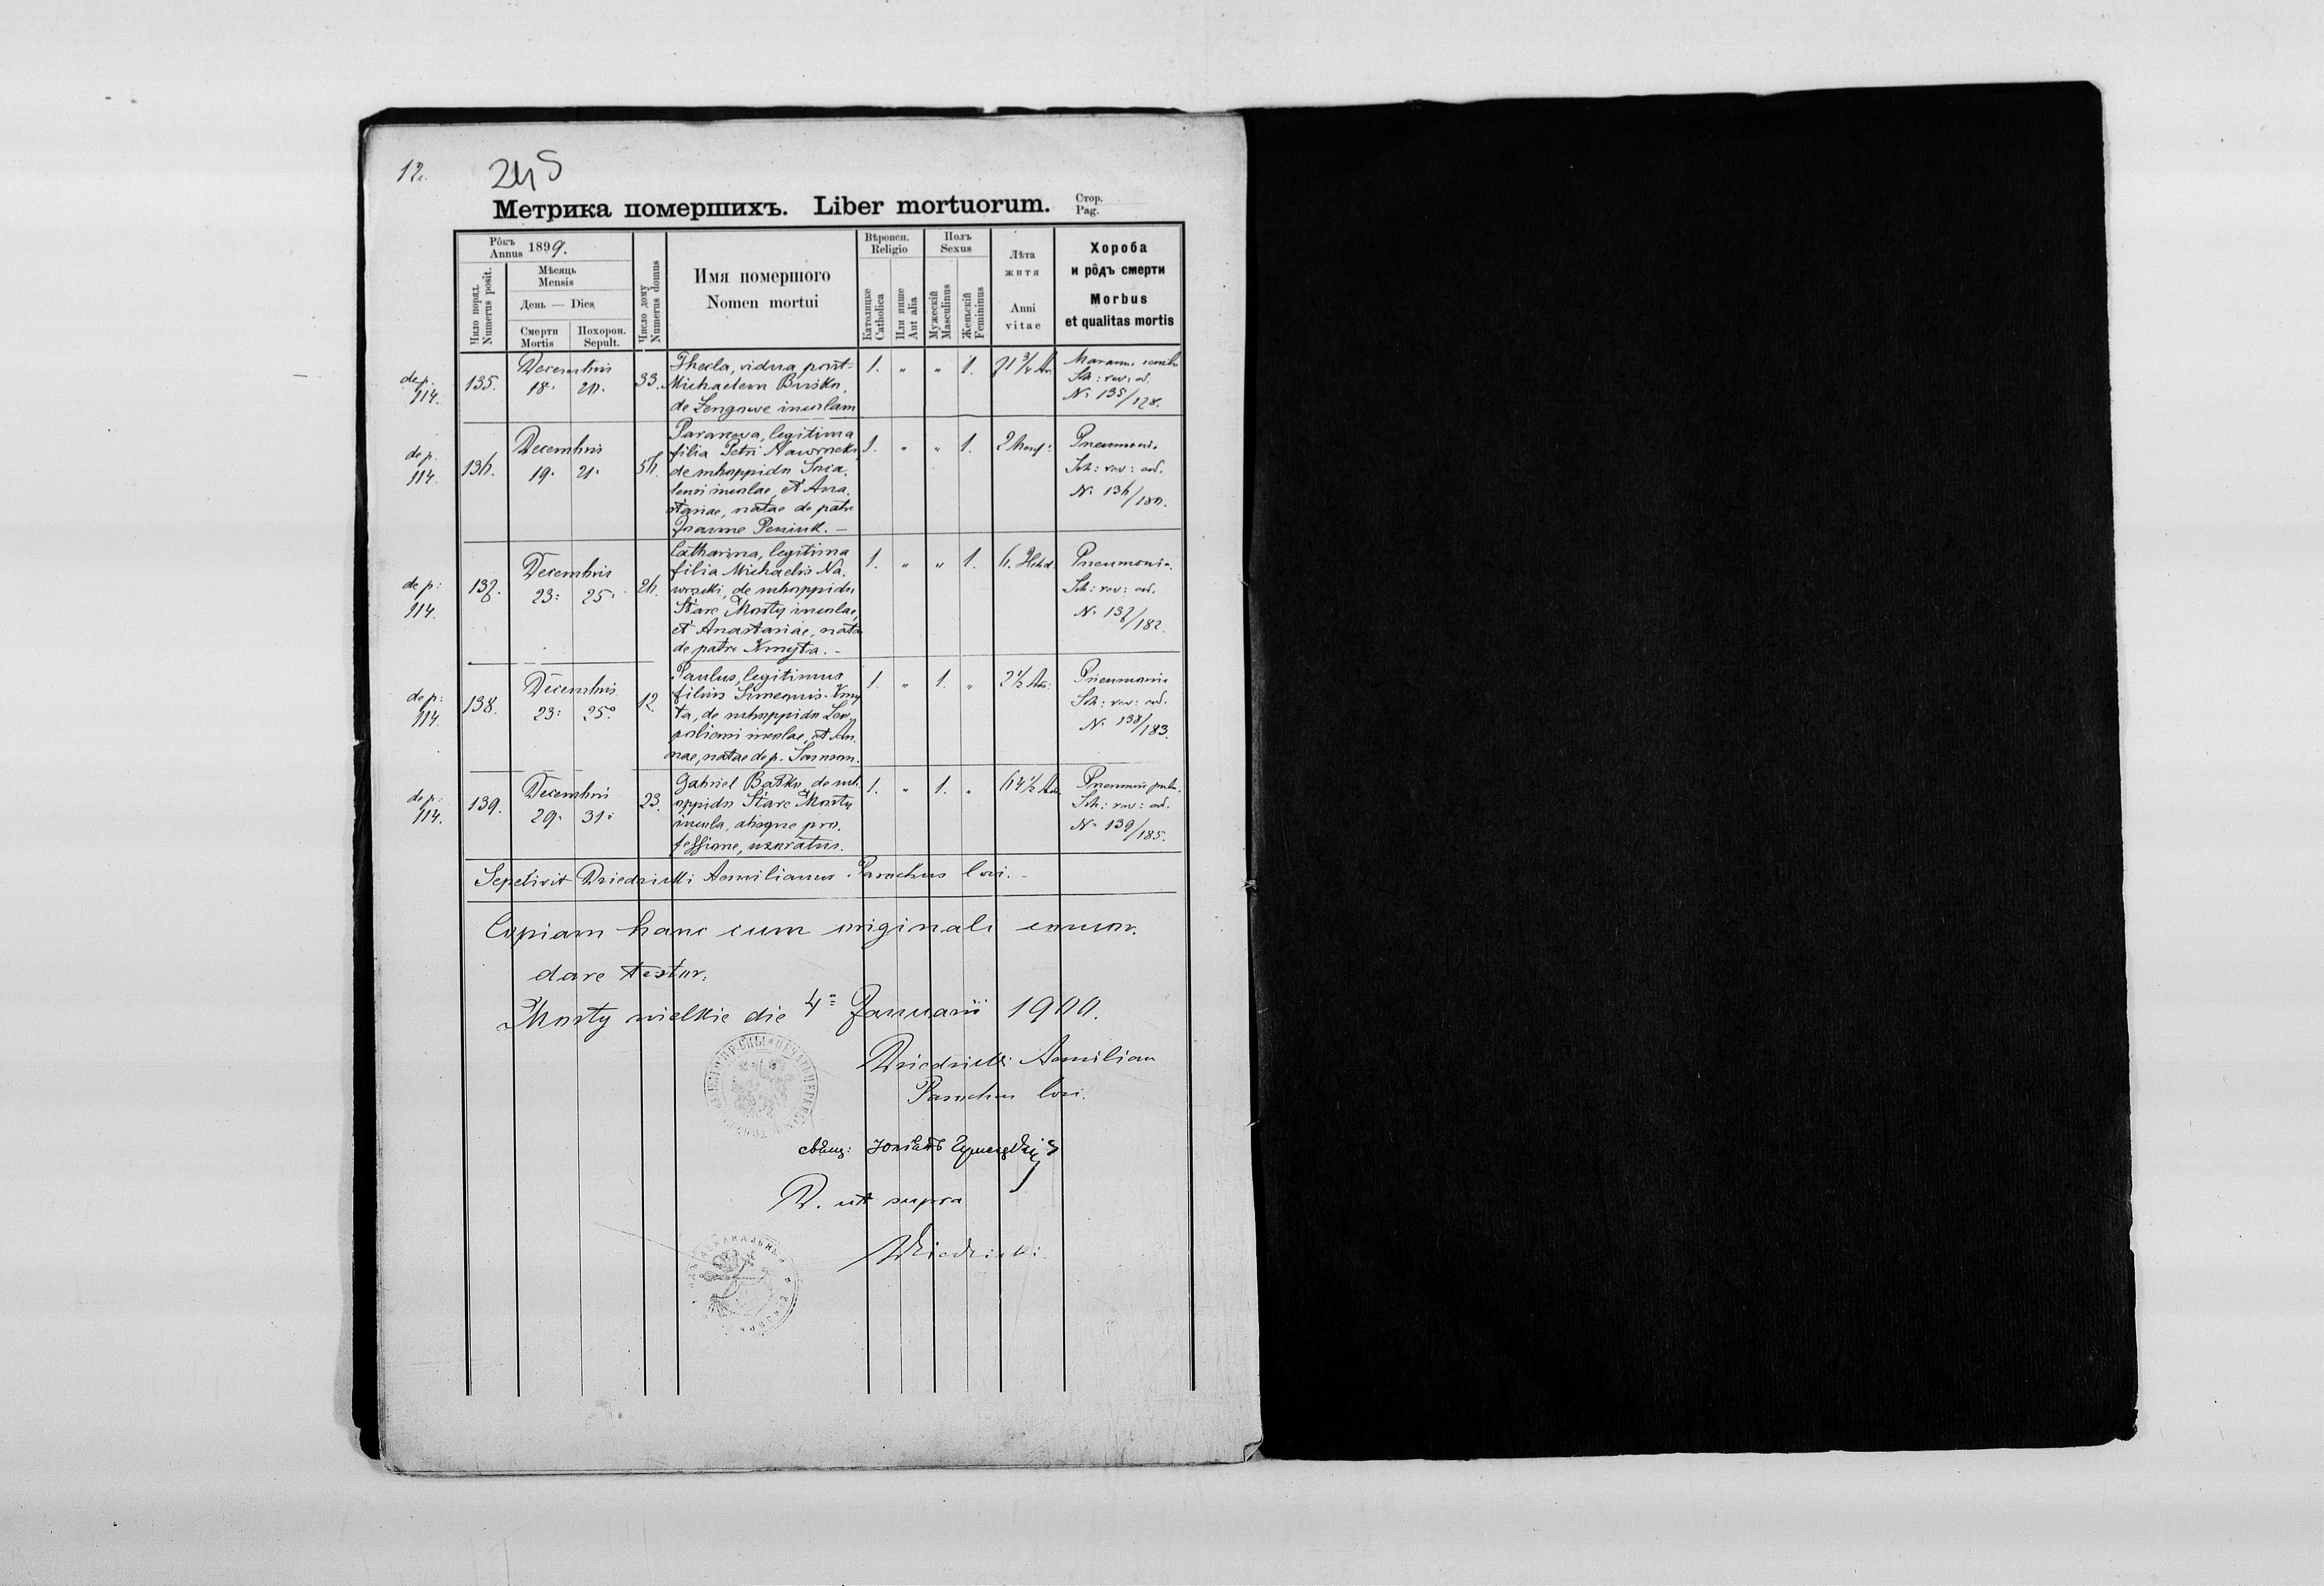 12.
245
Метрика помершихъ. Liber mortuorum.
Стор.
Pag.
Рôкъ
Annus 1899.
Число поряд.
Numerus posit.
Мѣсяць
Mensis
День — Dies
Смерти
Mortis
Похорон.
Sepult.
Число дому
Numerus domus
Имя помершого
Nomen mortui
Вѣроисп.
Religio
Католицке
Catholica
Или инше
Aut alia
Полъ
Sexus
Мужескій
Masculinus
Женьскій
Femininus
Лѣта
житя
Anni
vitae
Хороба
и рôдъ смерти
Morbus
et qualitas mortis
de p.
114.
135.
Decembris
18. 20.
33.
Thecla, vidua post
Michaelem Busko,
de Zengowe incolam
1. " " 1.
71 3/4 An
Sch: rev: od.
N. 135/178.
de p.
114.
136.
Decembris
19. 21.
56.
Parasceva, legitima
filia Petri Nawrocki,
de suboppido
incolae, et Ana-
stasiae, natae de patre
Joanne
1. " " 1.
Pneumonia
Sch: rev: od.
N. 136/180.
de p:
114.
137.
Decembris
23: 25.
26.
Catharina, legitima
filia Michaelis Na-
wrocki, de suboppido
Stare Mosty incolae,
et Anastasiae, nata
de patre Kmyta. -
1. " " 1.
6. Hebd.
Pneumonia.
Sch: rev: od.
N. 137/182.
de p:
114.
138.
Decembris
23: 25.
12.
Paulus, legitimus
filius Simeonis Kmy-
ta, de suboppido
incolae, et An-
nae, natae de p.
1. " 1. "
2 1/2 An:
Pneumonia
Sch: rev: od.
N. 138/183.
de p:
114.
139.
Decembris
29. 31.
23.
Gabriel Baśko, de sub-
oppido Stare Mosty
incola, absque pro-
fessione, uxoratus.
1. " 1. "
64 1/2 An
Sch: rev: od.
N. 139/185.
Sepelivit Dziedzicki Aemilianus Parochus loci. -
Copiam hanc cum originali concor-
dare testor.
Mosty wielkie die 4 Januarii 1900.
Dziedzicki Aemilian
Parochus loci.
свящ:
D. ut supra
Dziedzicki